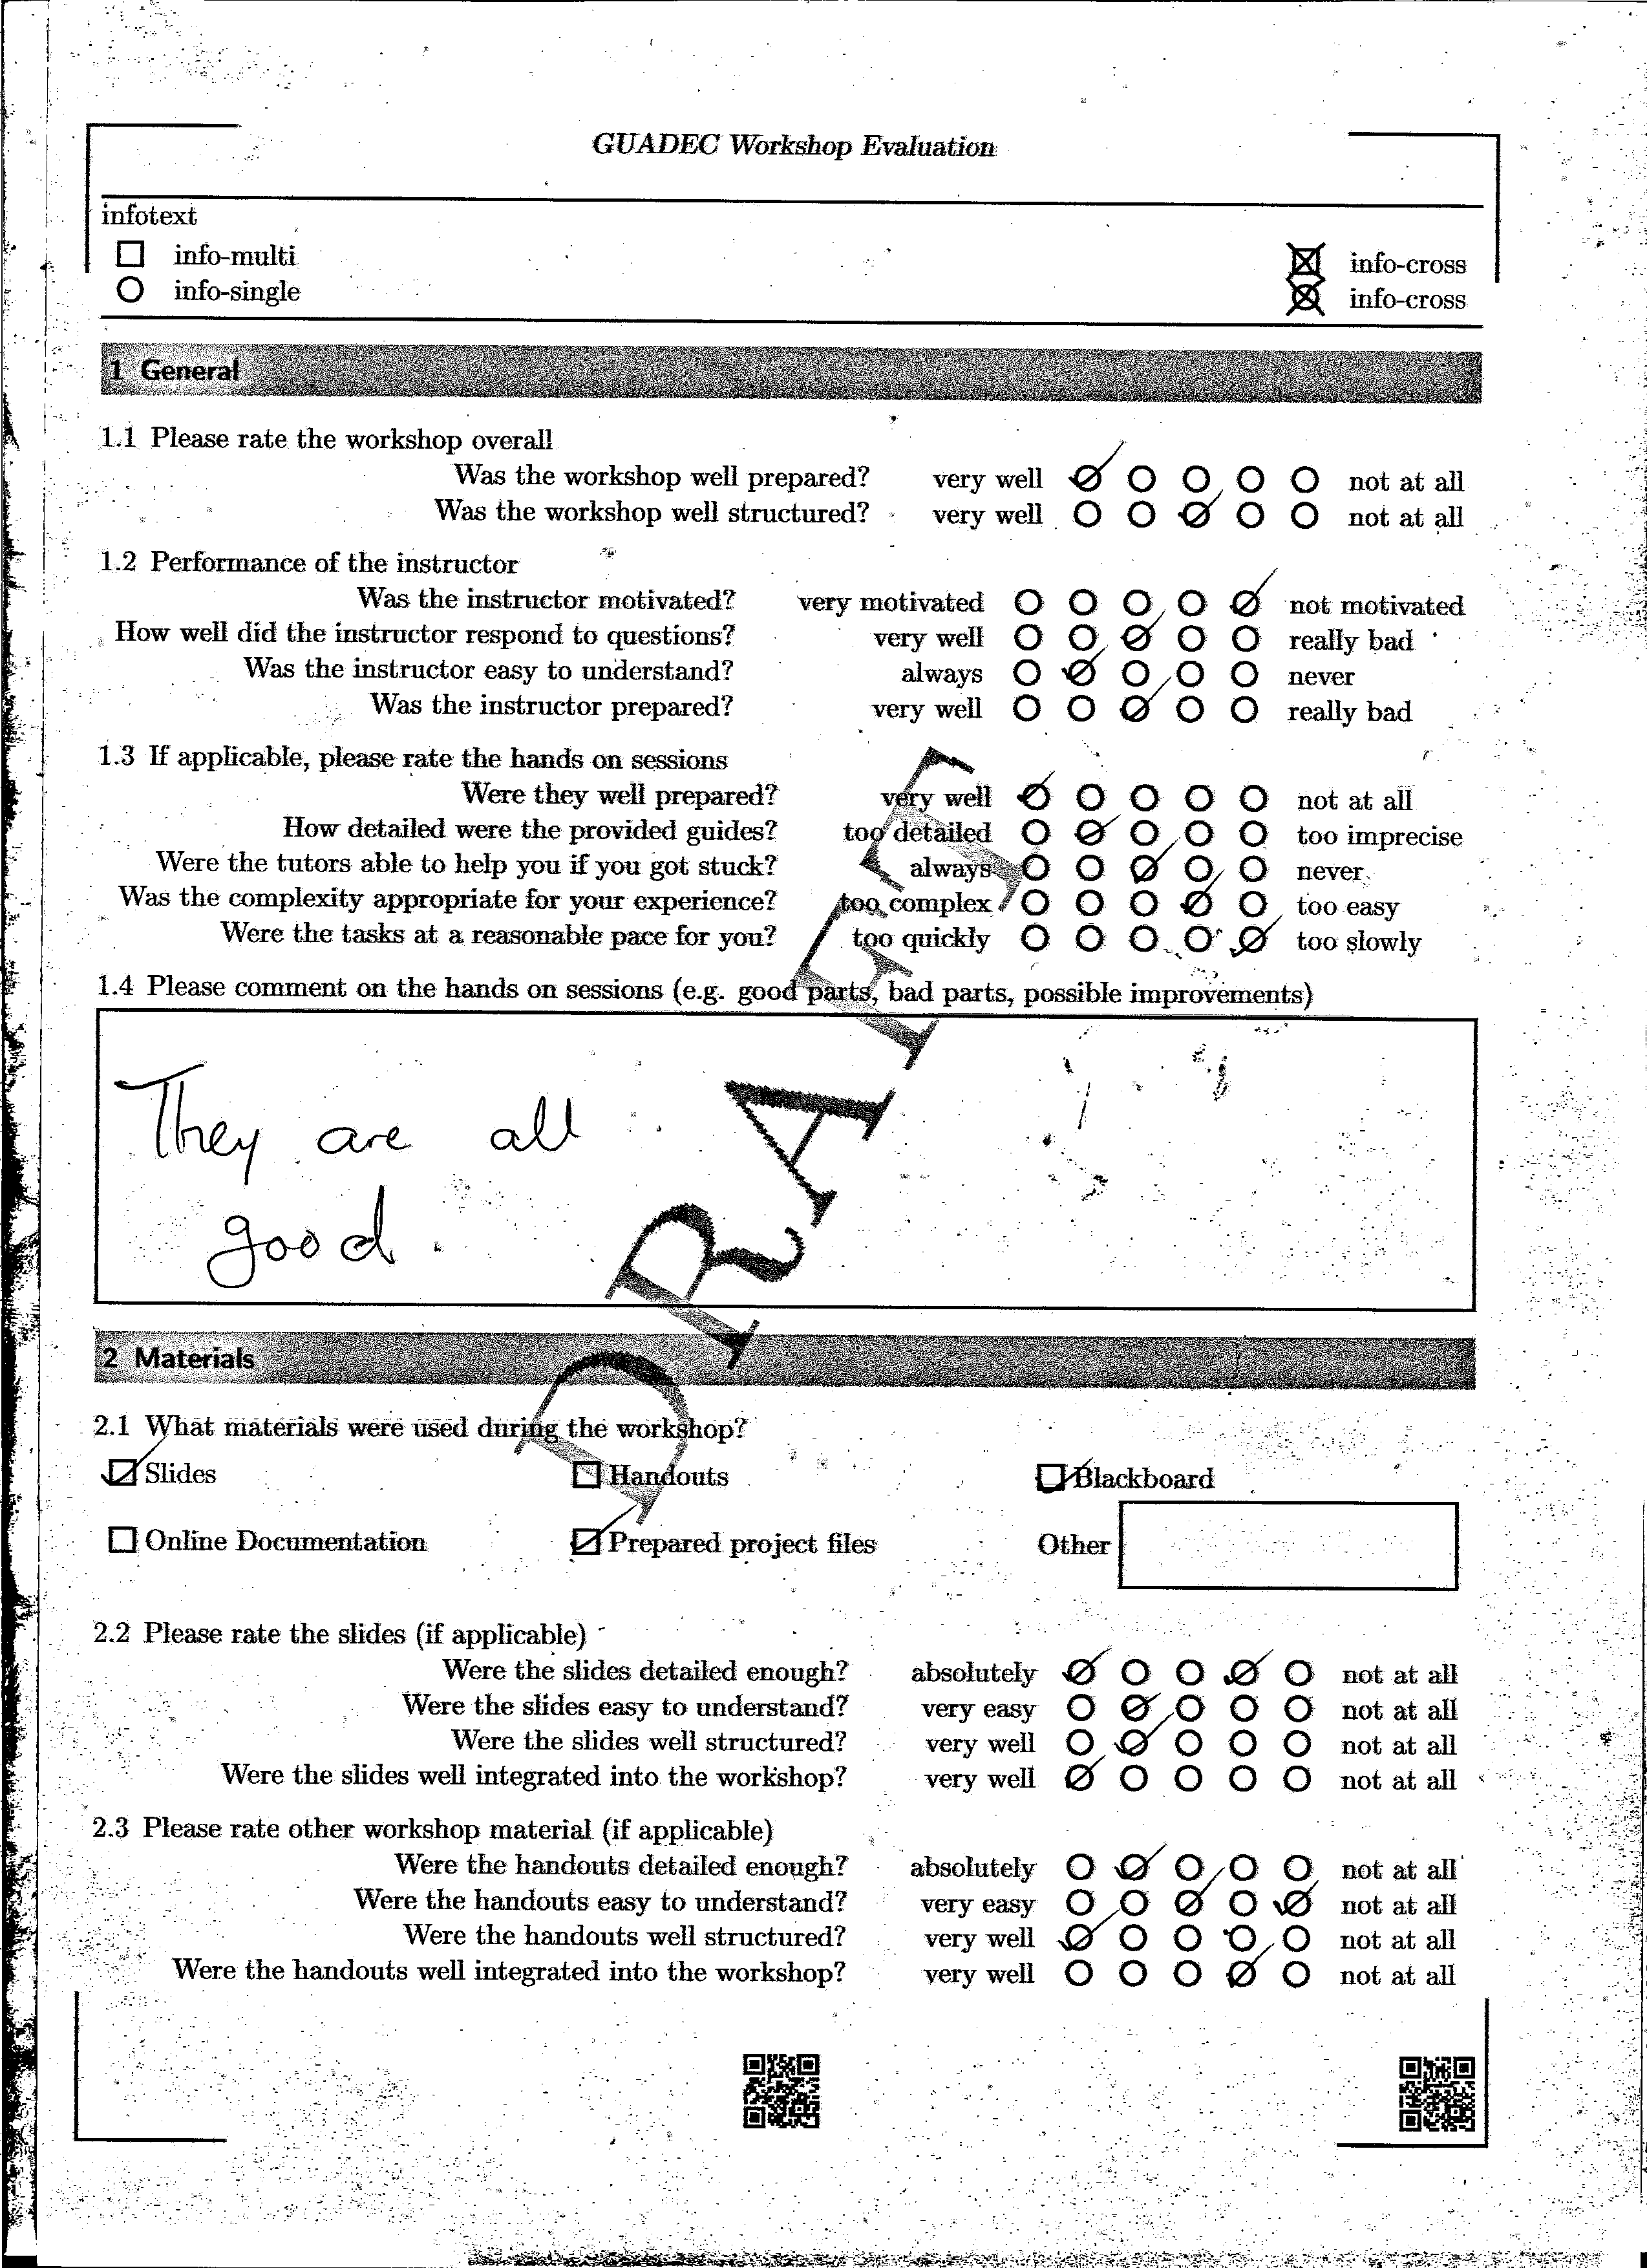 GUADEC Workshop Evaluation
infotext
info-multi
info-cross
info-single
info-cross
1 General
1.1 Please rate the workshop overall
Was the workshop well prepared? very well not at all
Was the workshop well structured? very well not at all
1.2 Performance of the instructor
Was the instructor motivated? very motivated not motivated
How well did the instructor respond to questions? very well really bad
Was the instructor easy to understand? always never
Was the instructor prepared? very well really bad
1.3 If applicable, please rate the hands on sessions
Were they well prepared? very well not at all
How detailed were the provided guides? too detailed too imprecise
Were the tutors able to help you if you got stuck? always never
Was the complexity appropriate for your experience? too complex too easy
Were the tasks at a reasonable pace for you? too quickly too slowly
1.4 Please comment on the hands on sessions (e.g. good parts, bad parts, possible improvements)
They are all
good.
DRAFT
2 Materials
2.1 What materials were used during the workshop?
Slides Handouts Blackboard
Online Documentation Prepared project files Other
2.2 Please rate the slides (if applicable)
Were the slides detailed enough? absolutely not at all
Were the slides easy to understand? very easy not at all
Were the slides well structured? very well not at all
Were the slides well integrated into the workshop? very well not at all
2.3 Please rate other workshop material (if applicable)
Were the handouts detailed enough? absolutely not at all
Were the handouts easy to understand? very easy not at all
Were the handouts well structured? very well not at all
Were the handouts well integrated into the workshop? very well not at all